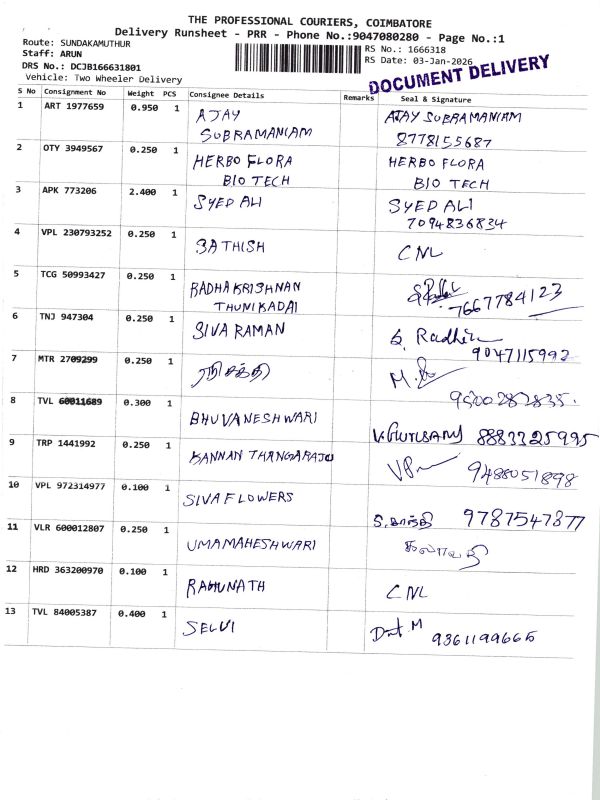 THE PROFESSIONAL COURIERS, COIMBATORE
Delivery Runsheet - PRR - Phone No.:9047080280 - Page No.:1
Route: SUNDAKAMUTHUR
RS No.: 1666318
Staff: ARUN
RS Date: 03-Jan-2026
DRS No.: DCJB166631801
Vehicle: Two Wheeler Delivery
DOCUMENT DELIVERY
S No Consignment No Weight PCS Consignee Details Remarks Seal & Signature
1 ART 1977659 0.950 1 AJAY SUBRAMANIAM
AJAY SUBRAMANIAM
8778155687
2 OTY 3949567 0.250 1 HERBO FLORA BIO TECH
HERBO FLORA
BIO TECH
3 APK 773206 2.400 1 SYED ALI SYED ALI
7094836834
4 VPL 230793252 0.250 1 SATHISH CNL
5 TCG 50993427 0.250 1 RADHAKRISHNAN
THUNIKADAI
7667784123
6 TNJ 947304 0.250 1 SIVA RAMAN
9047115992
7 MTR 2709299 0.250 1
8 TVL 60011689 0.300 1 BHUVANESHWARI
8883325995
9 TRP 1441992 0.250 1 KANNAN THANGARAJU
9488051898
10 VPL 972314977 0.100 1 SIVA FLOWERS
S. சாந்தி 9787547877
11 VLR 600012807 0.250 1 UMAMAHESHWARI
கலாவதி
12 HRD 363200970 0.100 1 RAGHUNATH CNL
13 TVL 84005387 0.400 1 SELVI
9361199665